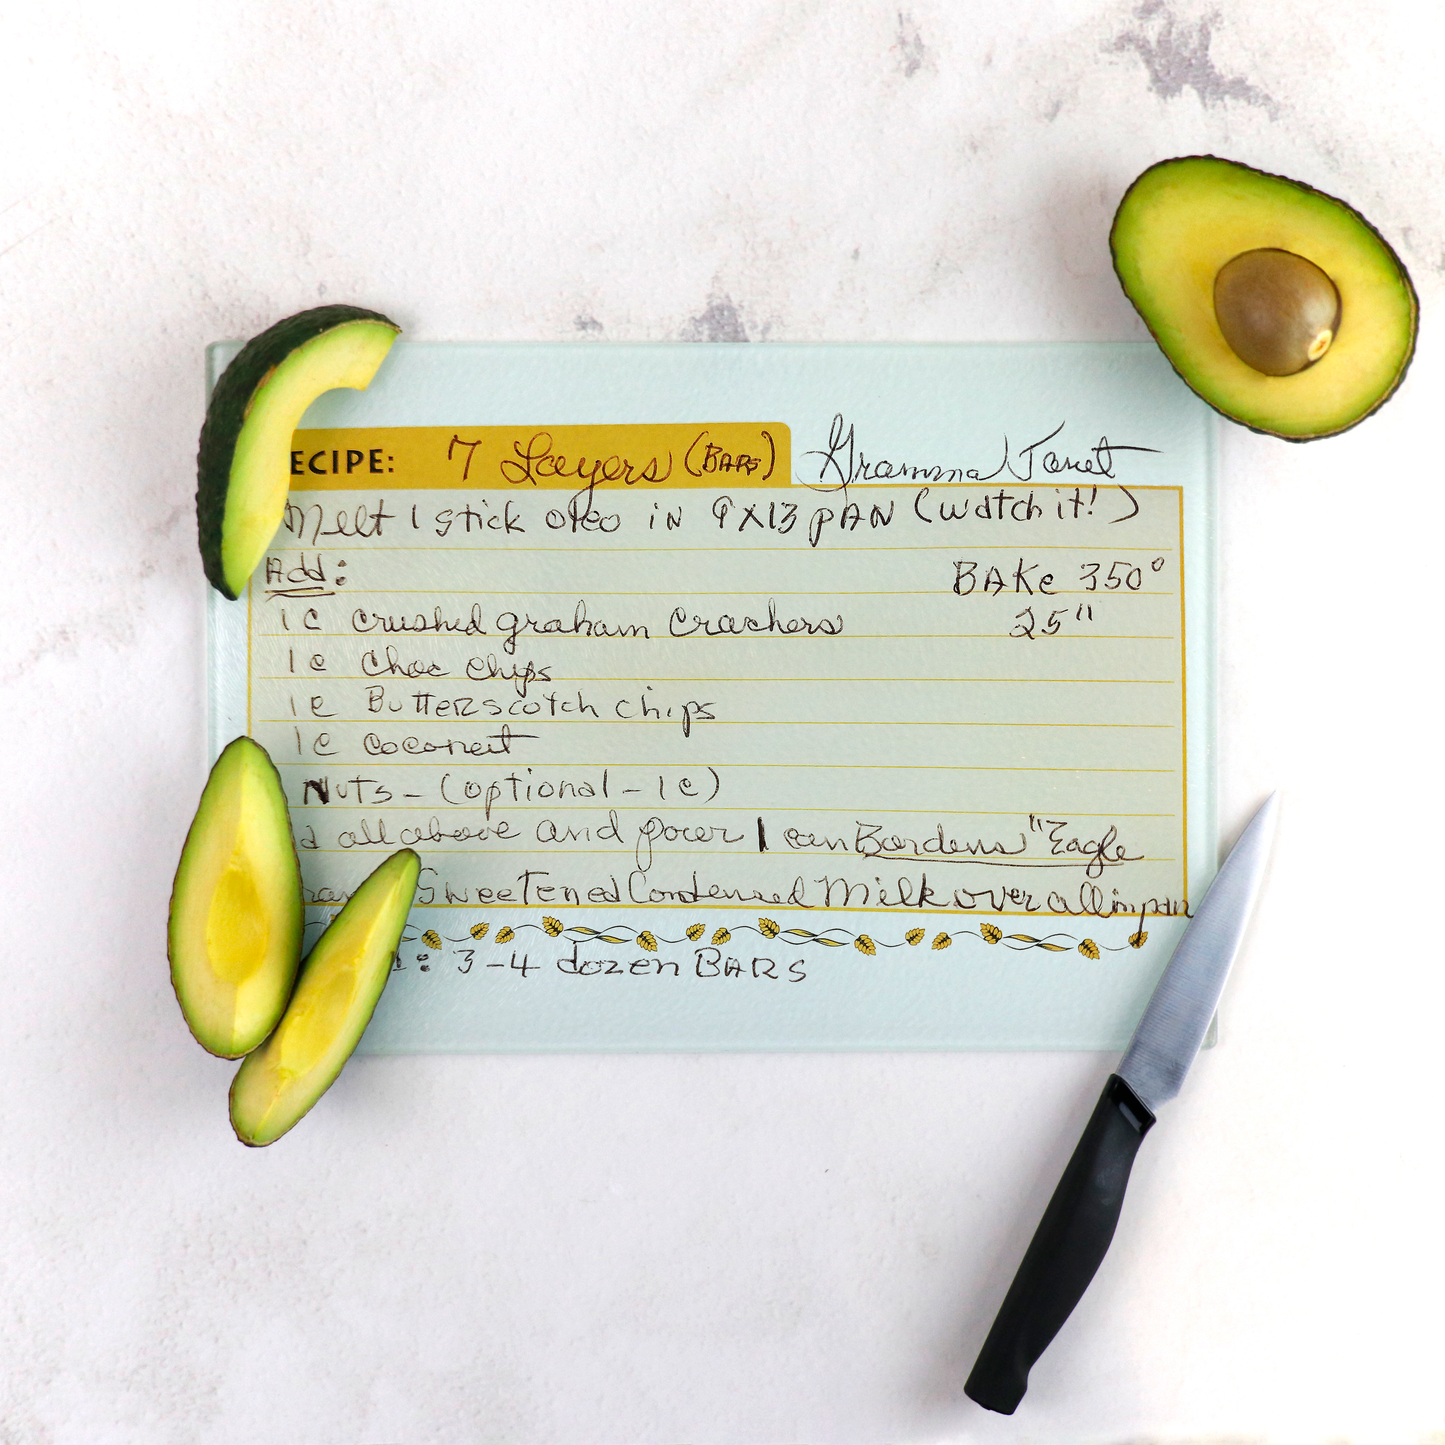 ECIPE: 7 Layers (BARS) Gramma Janet
Melt 1 stick oleo in 9X13 pAN (watch it!)
Add: BAKe 350°
1 c crushed graham crackers 25"
1 c choc chips
1 c Butterscotch chips
1 c coconut
Nuts - (optional - 1 c)
all above and pour 1 can Bordens "Eagle
Sweetened Condensed Milk over all in pan
: 3-4 dozen BARS